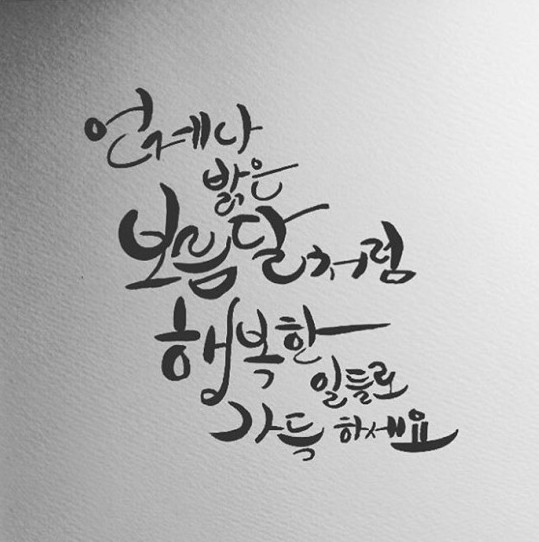 언제나
밝은
보름달처럼
행복한
일들로
가득 하세요